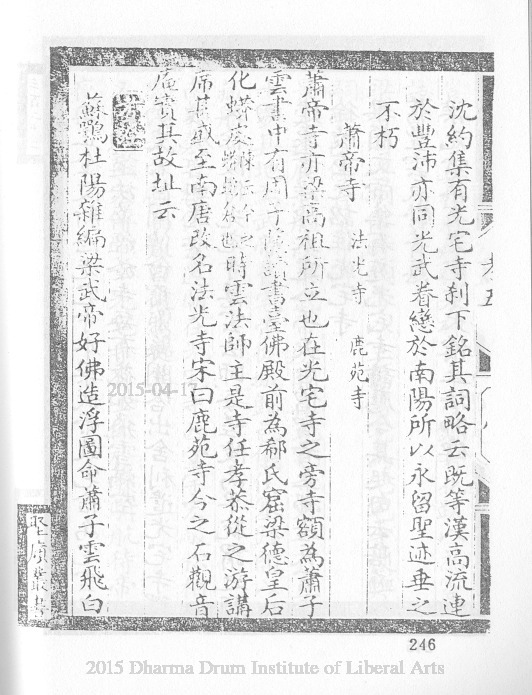 沈約集有光宅寺刹下銘其詞略云既等漢高流連
於豐沛亦同光武眷戀於南陽所以永留聖迹垂之
不朽
蕭帝寺 法光寺 鹿苑寺
蕭帝寺亦梁高祖所立也在光宅寺之旁寺額為蕭子
雲書中有周子隱讀書臺佛殿前為郗氏窟梁德皇后
化蟒處時雲法師主是寺任孝恭從之游講
席甚盛至南唐改名法光寺宋曰鹿苑寺今之石觀音
庵實其故址云
蘇鶚杜陽雜編梁武帝好佛造浮圖命蕭子雲飛白
卷五
246
2015-04-17
2015 Dharma Drum Institute of Liberal Arts